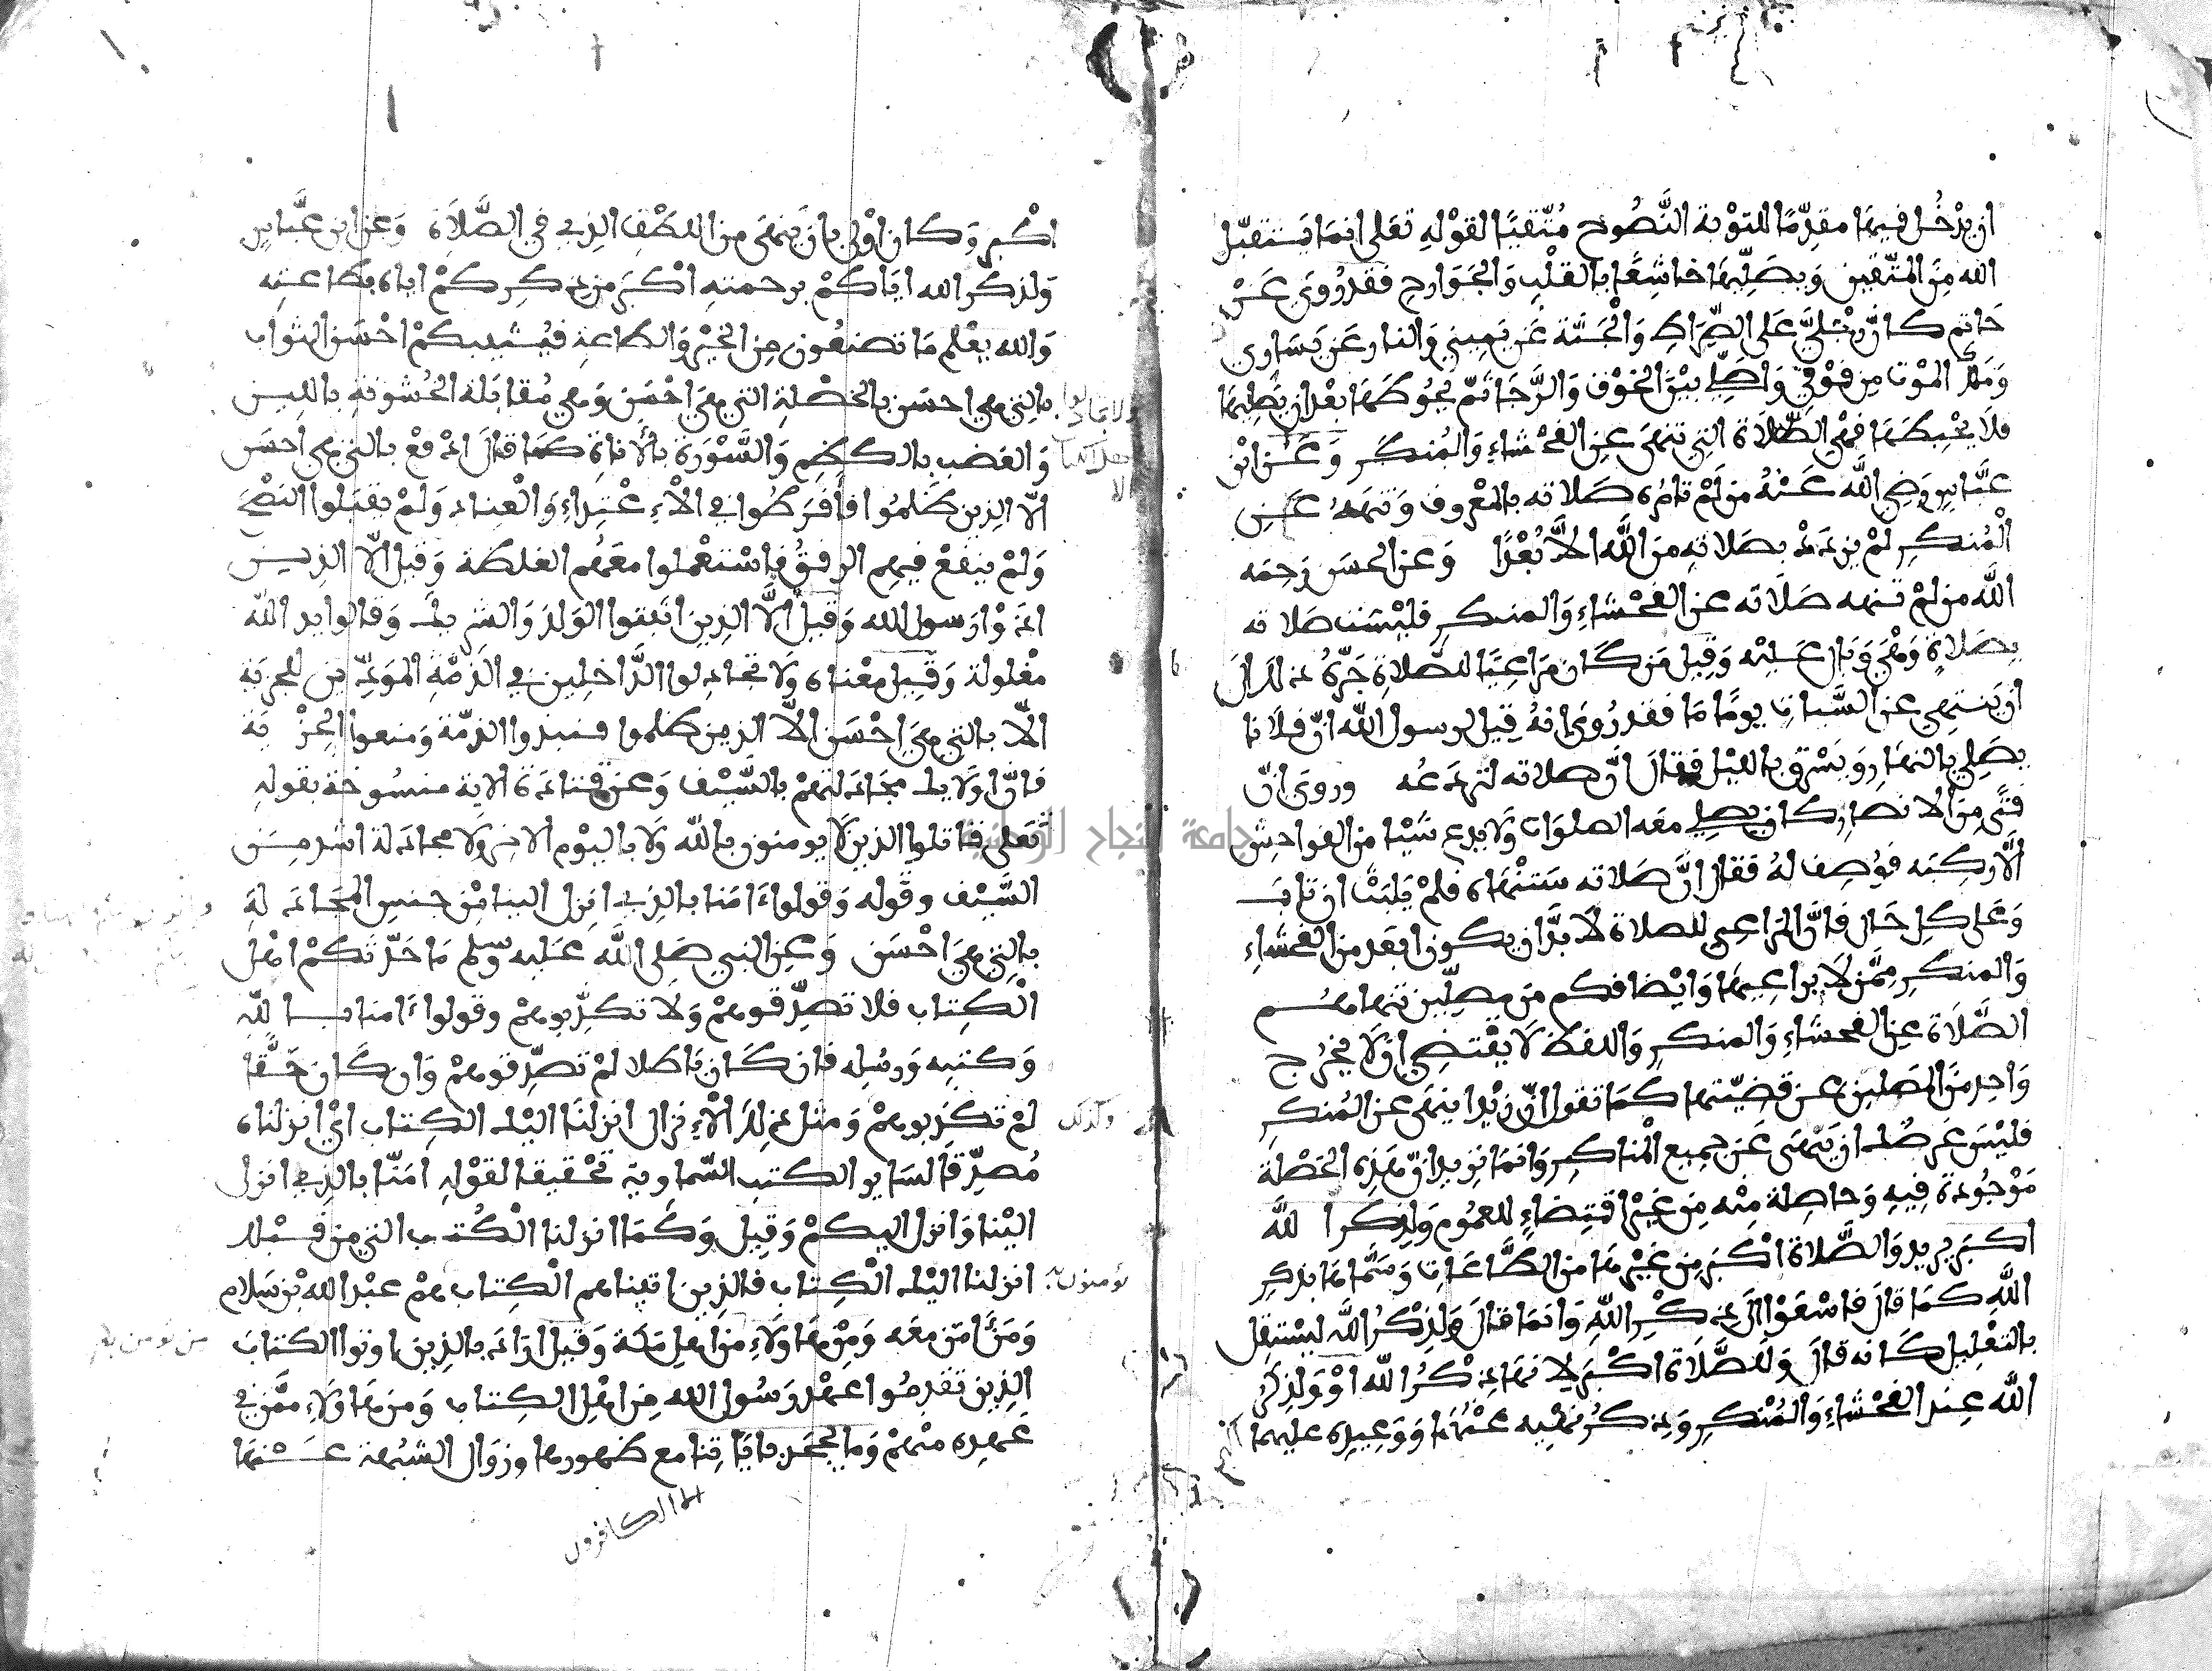 ان يدخل فيها مقدّمًا للتوبة النَّصُوح مُتّقيًا لقوْلهِ تعَلى انمَا يَتقبّل
الله مِنَ المتّقين وَيصَلِّيهَا خاشِعًا بالقلْبِ وَالجَوَارحِ فقد رُوِيَ عَنْ
حَاتم كانّ رجْليَّ عَلى الصِّرَاطِ وَالْجَنّة عَن يَمِيني وَالنار عَن يَسَاري
وَمَلَك المَوْت مِن فوْقي وَأصَلِّي بيْنَ الخوْف وَالرَّجَا ثمّ يحُوطهَا بعْد ان يُصَلِّيهَا
فلَا يحْبِطهَا فهْيَ الصَّلَاة التِي تنهَى عَنِ الفحْشاءِ وَالمُنكَر وَعَن ابْن
عبَّاسٍ رضِي اللَّه عَنْهُ من لَمْ تامُره صَلاته بالمَعْروف وَتنهَهُ عَنِ
الْمُنكرِ لمْ يزدَدْ بصَلاتهِ منَ اللَّه الاَّ بُعْدًا وَعن الحسَن رَحِمَه
اللَّه من لمْ تنهه صَلَاته عن الفحْشاءِ وَالمنكرِ فليْسَت صَلاته
بصَلاةٍ وَهْيَ وَبَال عَليْه وَقِيل مَن كَان مرَاعِيًا للصَّلاةِ جَرّهُ ذلك الَى
ان يَنتهِي عن السَّيئات يومًا مَا فقد رُوِيَ انهُ قِيل لرسول اللَّه انّ فلَانا
يصَلي بالنهَار وَيَسْرق بالليْل فقالَ انَّ صلاته لتردَعُه وروي انّ
فتًى مِنَ الانصَار كان يصَلي معَه الصلوَات وَلا يدع شَيْئا من الفواحِش
الَّا ركبَه فوُصِف لهُ فقالَ انَّ صَلاته سَتنْهَاه فلمْ يَلبَثْ ان تابَ
وَعَلى كل حَال فانَّ المرَاعِي للصلاة لَا بدَّ ان يكون ابعَد من الفحشَاءِ
وَالمنكرِ مِمَّن لَا يرَاعِيهَا وَايْضا فكم مِن مصلِّين تنهاهم
الصَّلَاة عنِ الفحشَاءِ وَالمنكرِ وَاللفظ لَا يقْتضِي اوْ لَا يخرُج
وَاحِد منَ المصَلين عن قضِيّتها كمَا تقول انّ زيْدا ينهَى عن المُنكر
فليْسَ غرَضُك ان يَنهَى عَن جميع الْمناكِر وَانمَا تريد انّ هَذِه الخصْلة
مَوْجُودة فِيهِ وَحاصِلة منْه مِن غَيْر اقتِضاءٍ للعمُوم وَلذِكر الله
اكبَر يريد وَالصَّلاة اكْبَر مِن غَيْرهَا من الطَّاعَاتِ وَسَمَّاهَا بذكرِ
اللَّهِ كمَا قالَ فاسْعَوْا الَى ذكْرِ اللَّهِ وَانمَا قالَ وَلذِكْرُ اللَّه ليسْتقِل
بالتعْلِيل كَانه قالَ وَللصَّلَاة اكْبَر لانهَا ذِكْرُ اللَّه اوْ وَلذِكر
اللَّه عِند الفحْشاءِ وَالمُنْكرِ وَذِكرُ نهْيِه عنْهُمَا وَوَعِيده عليهمَا
اكْبر وَكان اوْلى بان يَنهَى من اللطْفِ الذِي في الصَّلَاة وَعن ابن عبَّاس
وَلذكر الله اياكُمْ برحمتهِ اكْبَر من ذكرِكمْ اياه بطاعتِه
وَالله يعْلم مَا تصنعُون مِن الخيْرِ وَالطاعةِ فيُثيبكمْ احْسَن الثواب
ولا تجادلوا اهل الكتاب الا
بالتِي هِي احسَن بالخصْلة التي هِيَ احْسَن وَهي مُقابَلة الخُشونة بالليـن
وَالغضب بالكظم وَالسَّوْرَة بالْأناة كمَا قالَ ادْفعْ بالتي هِي احسَن
الّا الذِين ظلمُوا فافرَطُوا في الْاعْتِدَاءِ وَالْعِناد وَلَمْ يقبَلوا النصْحَ
وَلَمْ ينفعْ فيهِم الرفقُ فاسْتعْمِلوا معَهُم الغلظة وَقيل الّا الذيـن
اذَوْا رَسول الله وَقِيلَ الَّا الذِينَ اثبَتوا الوَلدَ وَالشرِيك وَقالوا يد اللَّه
مغْلولة وَقِيل معْناه وَلَا تجادِلوا الدَّاخلِين في الذمَّةِ المُوَدِّين للجزيَة
الّا بالتي هِيَ احْسَن الَّا الذين ظلموا فنبذوا الذمّة وَمنعوا الجزْيَة
فانّ اولَايك مجَادَلتهمْ بالسَّيْف وَعن قتادَة الاية منسُوخة بقوله
تعَلى قاتلوا الذين لَا يومنون بالله وَلا باليوْم الاخر وَلا مجادَلة اشد مِـن
السَّيْف وقوله وَقولوا ءَامَنا بالذِي انزل الينا مِن جنسِ المجَادَلةِ
بالتِي هِيَ احْسَن وَعنِ النبي صَلى اللَّه عَليه وسلم مَا حَدّثكمْ اهْل
الْكِتابِ فلا تصَدِّقوهمْ وَلَا تكذِّبوهمْ وقولوا ءَامنا بـا للَّه
وَكتبه وَرسُله فان كَان بَاطلا لمْ تصَدِّقوهمْ وَان كَان حَقًّا
وكذلك
لمْ تكذِّبوهمْ وَمثل ذلِكَ الْانزال انزلنَا اليْك الكِتاب ايْ انزلناه
مُصدِّقا لسَاير الكتب السَّماوية تحْقيقا لقوْلهِ امَنّا بالذِي انزل
اليْنا وَانزل اليكمْ وَقِيل وَكَمَا انزلنا الْكُتب التي من قبْلك
انزلنا اليْك الْكِتاب فالذِينَ اتيناهم الْكِتاب همْ عبْد الله بْن سَلام
يومنون به
وَمَن امَن معَه وَمِنْ هَاولَاءِ من اهل مَكة وَقيل ارَادَ بالذِين اوتوا الكتابَ
من يومن به
الذِين تقدمُوا عهْد رَسُول الله مِن اهْل الكِتابِ وَمن هَاولَاءِ ممَّن في
عَهدِه منهمْ وَمَا يجْحَد بايَاتِنا مع ظهورها وزوَال الشبْهة عـنهَا
الا الكافرون
جامعة النجاح الوطنية